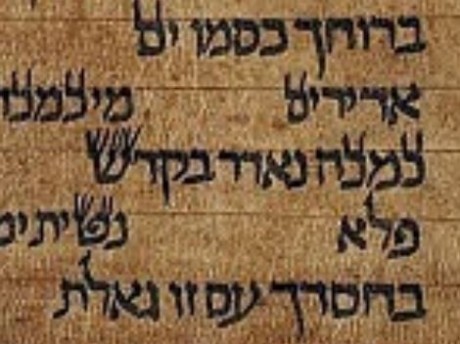 ברוחך כסמו ים
אדירים מי כמכה
כמכה נאדר בקדש
פלא נטית
בחסדך עם זו גאלת